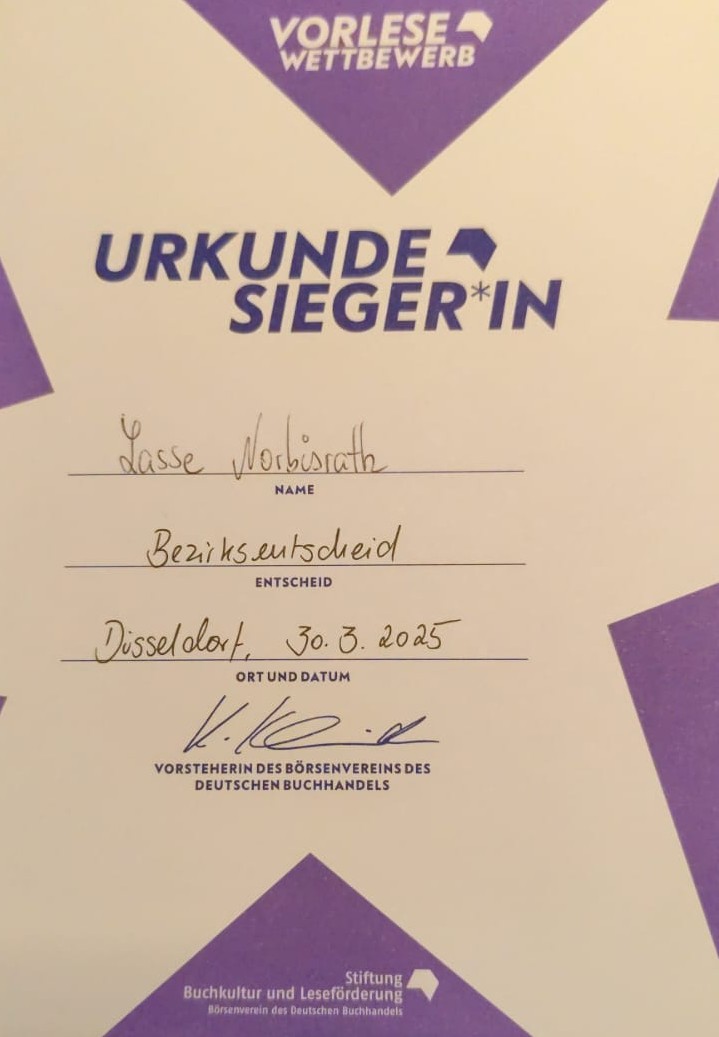 VORLESE
WETTBEWERB
URKUNDE
SIEGER*IN
Lasse Norbisrath
NAME
Bezirksentscheid
ENTSCHEID
Düsseldorf, 30.3.2025
ORT UND DATUM
VORSTEHERIN DES BÖRSENVEREINS DES
DEUTSCHEN BUCHHANDELS
Stiftung
Buchkultur und Leseförderung
Börsenverein des Deutschen Buchhandels